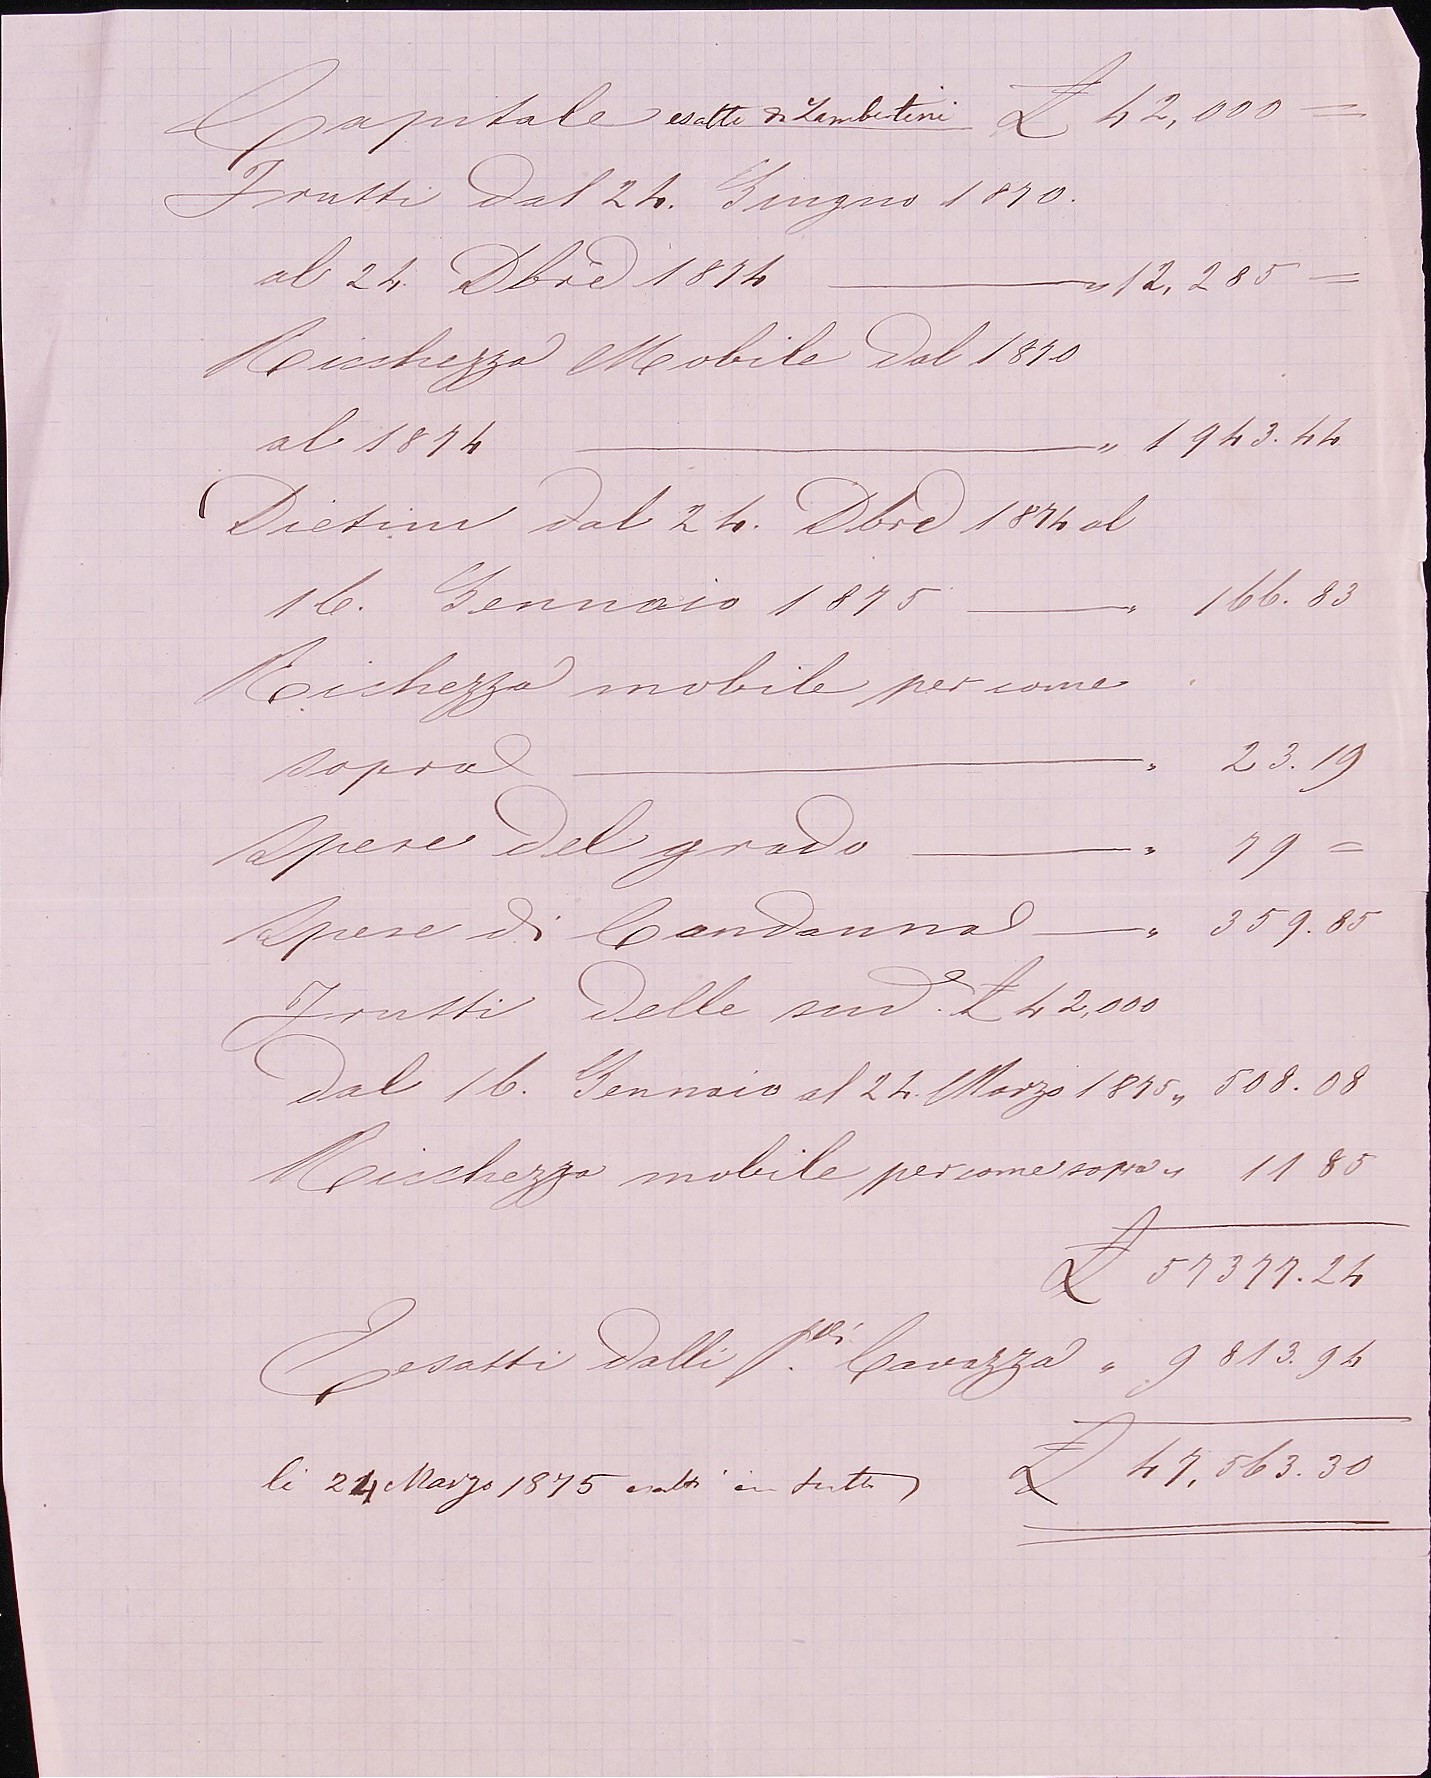 Capitale esatte da Lambertini £ 42,000 =
Frutti dal 24. Giugno 1870.
al 24 Dbre 1874 —— „ 12,285 =
Ricchezza Mobile dal 1870
al 1874 —— „ 1943.44
Dietim dal 24. Dbre 1874 al
16. Gennaio 1875 —— „ 166.83
Richezza mobile per come
sopra —— „ 23.19
Spese del grado —— „ 79 =
Spese di Condanna —— „ 359.85
Frutti delle sudᵉ. £ 42,000
dal 16. Gennaio al 24. Marzo 1875 „ 508.08
Ricchezza mobile per come sopra „ 11 85
£ 57377.24
Eesatti dalli Cavazza „ 9813.94
£ 47,563.30
li 24 Marzo 1875 esatti in tutto